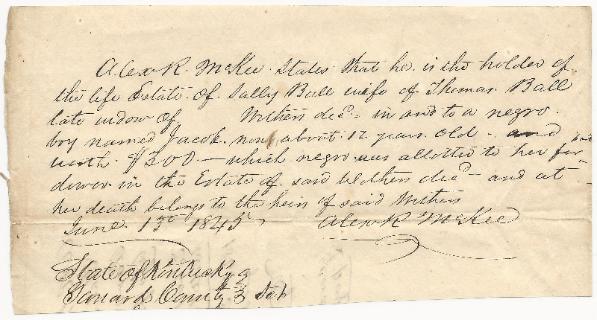 Alex R. McKee States that he is the holder of
the life Estate of Sally Ball wife of Thomas Ball
late widow of Withers decd - in and to a negro
boy named Jacob now about 12 years old - and
worth $200 - which negro was allotted to her for
dower in the Estate of said Withers decd - and at
her death belongs to the heirs of said Withers
June 13th 1845 Alex R McKee
State of Kentucky
Garrard County Sct